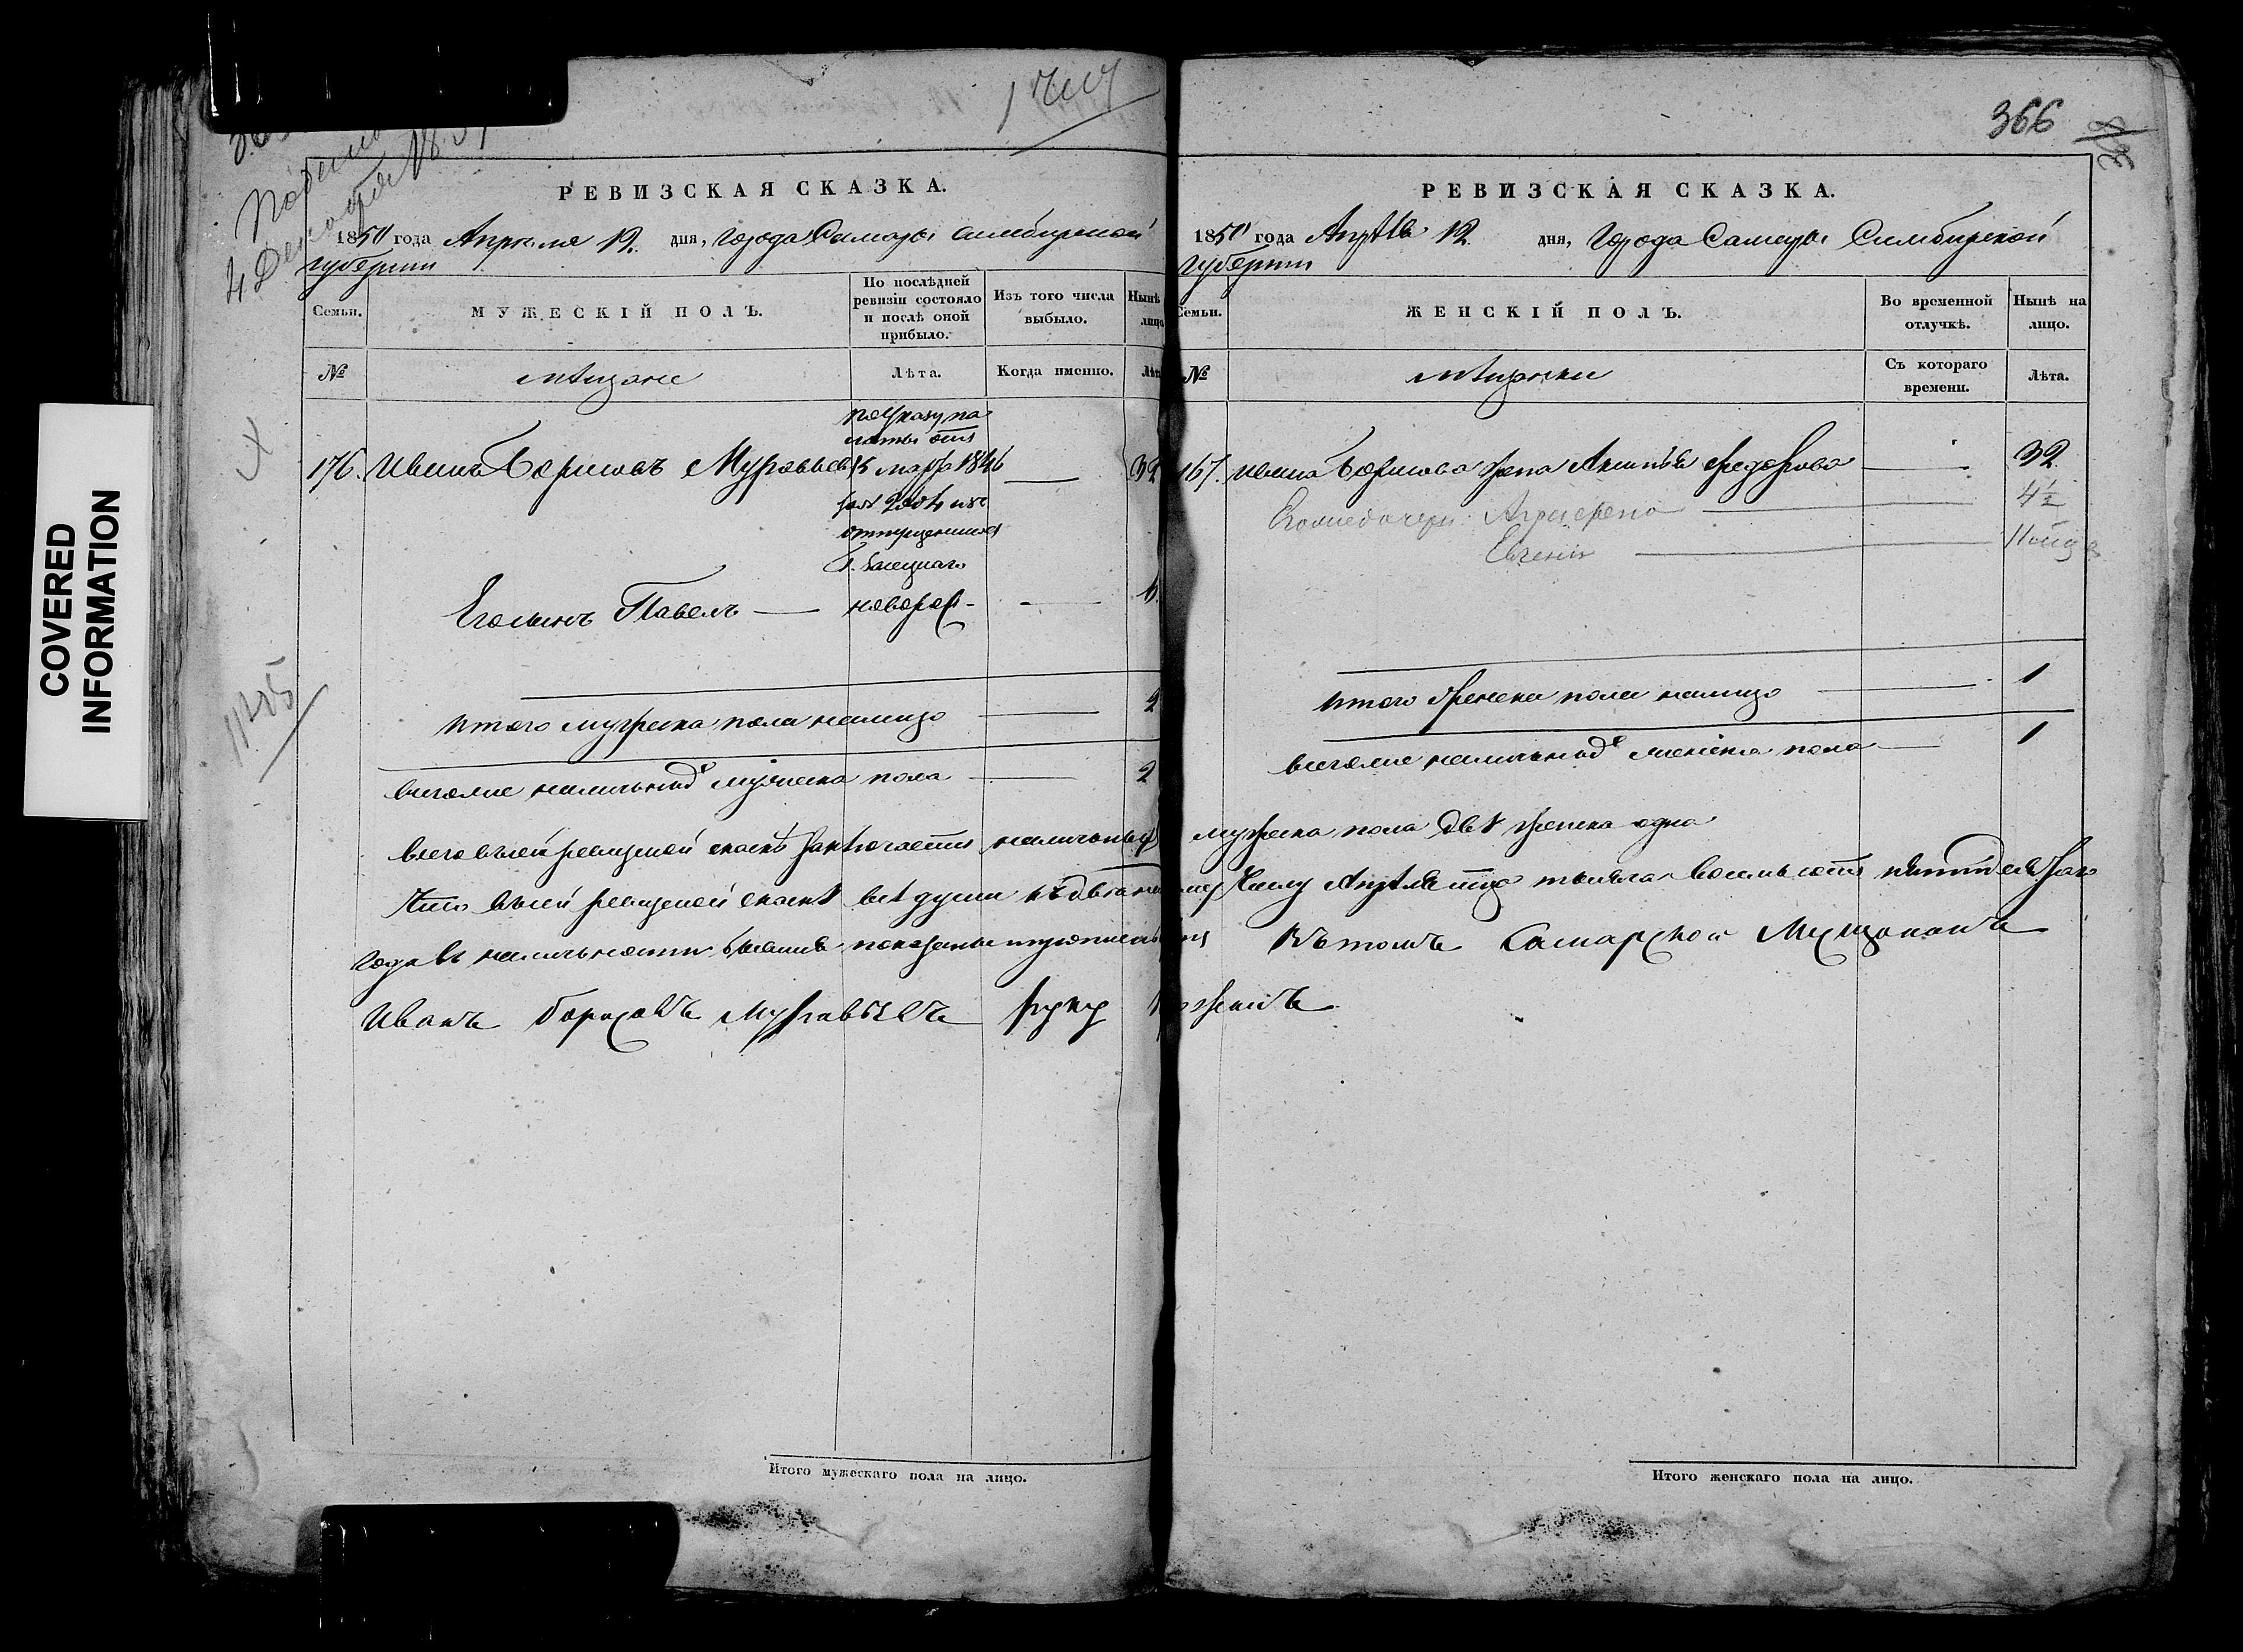 COVERED
INFORMATION
366
РЕВИЗСКАЯ СКАЗКА.
1850 года Апреля 12. дня, Города Самары Симбирской
губернии
Семьи.
МУЖЕСКІЙ ПОЛЪ.
По послѣдней
ревизіи состояло
и послѣ оной
прибыло.
Изъ того числа
выбыло.
Нынѣ
лицо
№
мѣщане
Лѣта.
Когда именно.
Лѣт
по указу па
латы отъ
176. Иванъ Борисовъ Муравьевъ 15 марта 1846 32
за № 2004 изъ
отпущенныхъ
Его сынъ Павелъ новорож- 6
Итого мужеска пола налицо 2
Всего же наличныхъ мужеска пола 2
РЕВИЗСКАЯ СКАЗКА.
1850 года Апрѣля 12 дня, Города Самары Симбирской
губернии
Семьи.
ЖЕНСКІЙ ПОЛЪ.
Во временной
отлучкѣ.
Нынѣ на
лицо.
№
мѣщанки
Съ котораго
времени.
Лѣта.
167. Ивана Борисова жена Федорова 32
дочери Агрифена 4½
Евгенія 11
Итого женска пола налицо 1
Всего же наличныхъ женска пола 1
Всего въ сей ревизской сказкѣ заключается наличныхъ мужеска пола двѣ женска одна
Что въ сей ревизской сказкѣ всѣ души къ числу Апрѣля тысяча восемь сотъ пятидесятаго
года въ наличности бывшие показаны и прописныхъ нѣтъ въ томъ Самарской Мещанинъ
Иванъ Борисовъ Муравьевъ руку приложилъ
Итого мужескаго пола на лицо.
Итого женскаго пола на лицо.